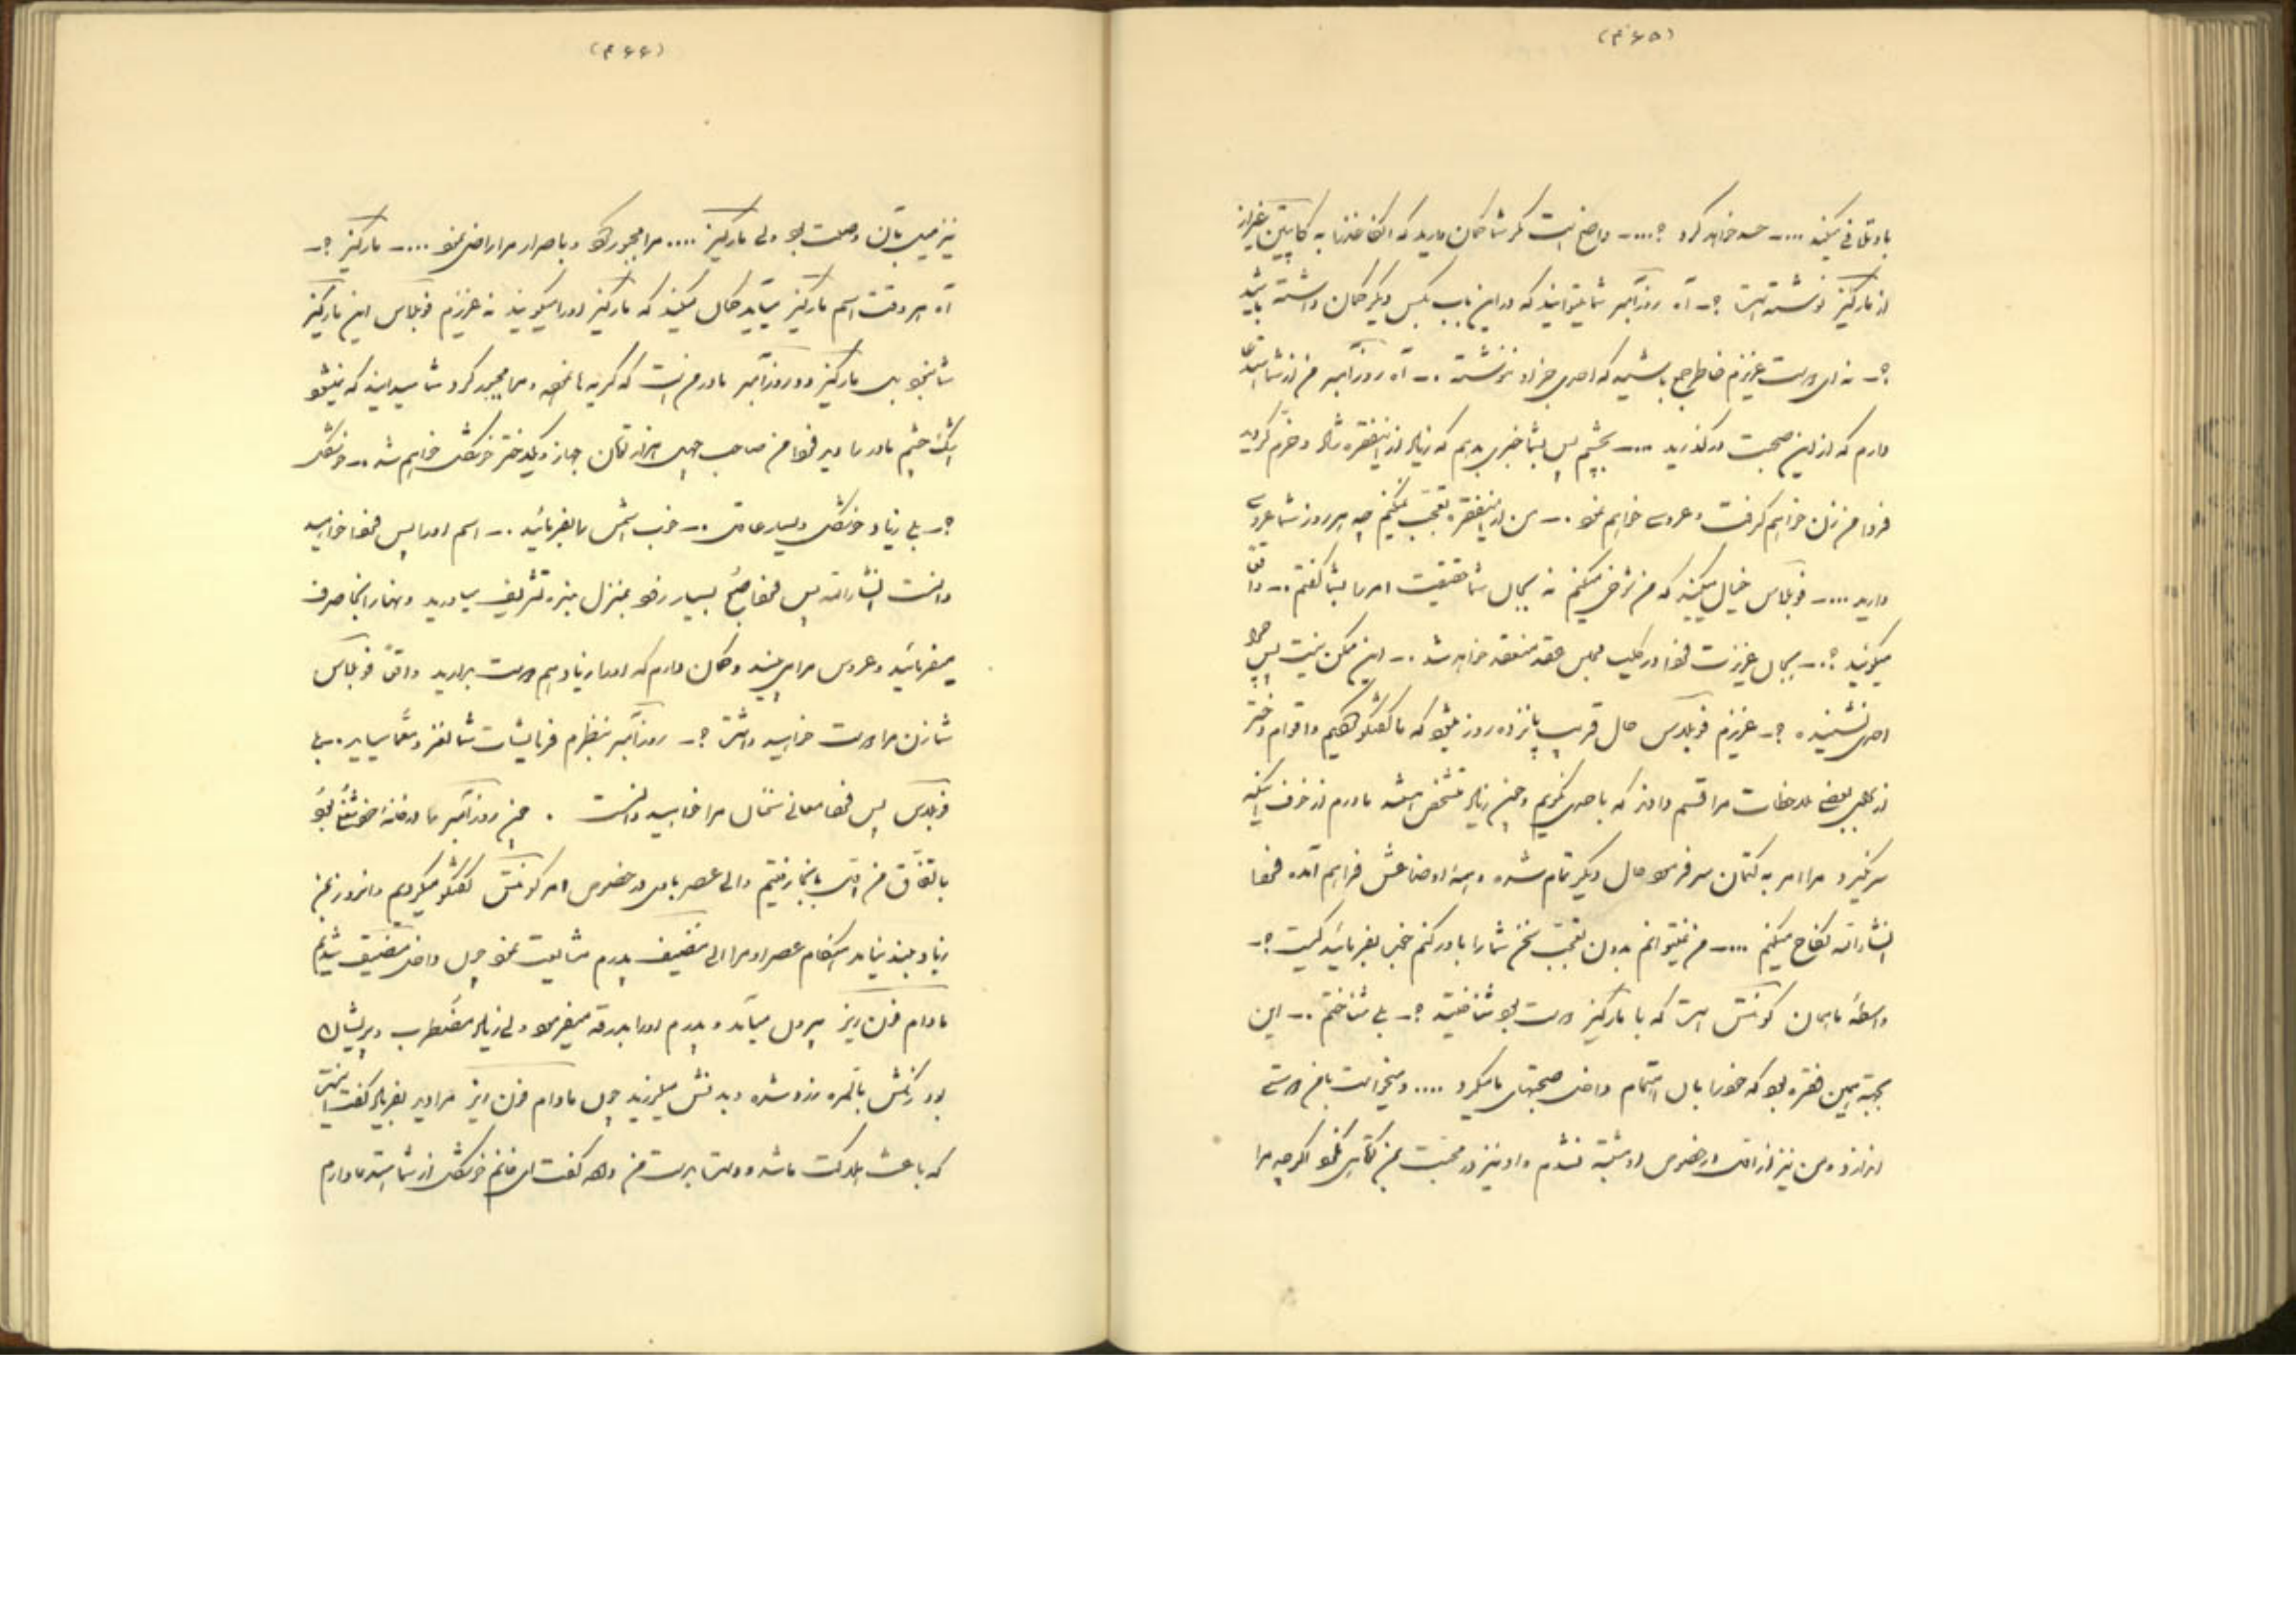 (۴۶۵)
باو تلافی میکنید .... حسد خواهد کرد ؟.... واضح است مگر شما گمان دارید که این کاغذ را به کاپیتن غیر از
از مارکیز نوشته است ؟ـ آه روزآمبر شما میتوانید که در این باب بکس دیگر گمان داشته باشید
؟ـ نه ای دوست عزیزم خاطر جمع باشید که احدی جز او ننوشته .ـ آه روزآمبر من از شما استدعا
دارم که از این صحبت درگذرید .... بچشم پس بشما خبری بدهم که زیاد از اینفقره شاد و خرّم گردید
فردا من زن خواهم گرفت و عروسی خواهم نمود .ـ من از اینفقره تعجب نمیکنم چه هر روز شما عروسی
دارید .... فوبلاس خیال میکنید که من شوخی میکنم نه بجان شما حقیقت امر را بشما گفتم .ـ واقعاً
میگوئید ؟.ـ بجان عزیزت فردا در کلیسا مجلس عقد منعقد خواهد شد .ـ این ممکن نیست پس چرا
احدی نشنیده ؟ـ عزیزم فوبلاس حال قریب پانزده روز میشود که ما گفتگو کردهایم و اقوام دختر
از بابت بعضی ملاحظات مرا قسم دادند که باحدی نگویم و چون زیاد مشخص استند مادرم از خوف اینکه
سر نگیرد مرا امر به کتمان سر فرمود حال دیگر تمام شده و همه اوضاعش فراهم آمده فردا
انشاءالله نکاح میکنم .... من نمیتوانم بدون تعجب سخن شما را باور کنم خب بفرمائید کیست ؟ـ
واسطه ما همان کونتس است که با مارکیز دوست بود شناختید ؟ـ بلی شناختم .ـ این
بجهة همین فقره بود که خود را باین اهتمام داخل صحبتهای ما میکرد .... و میخواست با من دوستی
اندازد و من نیز از اول در خصوص او مشتبه نشدم و او نیز در محبت بمن کوتاهی نکرد اگرچه مرا
(۴۶۶)
نیز میل بآن وصلت بود ولی مارکیز .... مرا مجبور کرد و باصرار مرا راضی نمود .... مارکیز ؟ـ
آه هر وقت اسم مارکیز میآید گمان میکنید که مارکیز اورا میگویند نه عزیزم فوبلاس این مارکیز
شما نبود بلکه مارکیز دو روزآمبر مادر من است که گریه ها نموده و مرا مجبور کرد شما میدانید که نمیشود
اشک چشم مادر را دید فردا من صاحب چهل هزار تومان جهاز و یکدختر خوشگل خواهم شد .ـ خوشگل
؟ـ بلی زیاد خوشگل و بسیار عاقل .ـ خوب اسمش را بفرمائید .ـ اسم اورا پس فردا خواهید
دانست انشاءالله پس فردا صبح بسیار زود بمنزل بنده تشریف بیاورید و نهار را آنجا صرف
میفرمائید و عروس مرا می بینید و گمان دارم که اورا زیاد هم دوست بدارید واقعاً فوبلاس
شما زن مرا دوست خواهید داشت ؟ـ روزآمبر بنظرم فرمایشات شما لغز و معما میآید .ـ بلی
فوبلاس پس فردا معانی سخنان مرا خواهید دانست . چون روزآمبر را در خانه خود شغلی بود
باتفاق من اول بآنجا رفتیم و الی عصر باهم در خصوص امر کونتس گفتگو میکردیم و آنروز بمن
زیاد بد نیامد هنگام عصر او مرا الی مضیف پدرم مشایعت نمود چون داخل مضیف شدیم
مادام فون ریز بیرون میآمد و پدرم اورا بدرقه میفرمود ولی زیاد مضطرب و پریشان
بود رنگش بالمره زرد شده و بدنش میلرزید چون مادام فون ریز مرا دید بفریاد گفت اینست
که باعث هلاکت ما شده و دست بدست من داده گفت ای خانم خوشگل از شما استدعا دارم